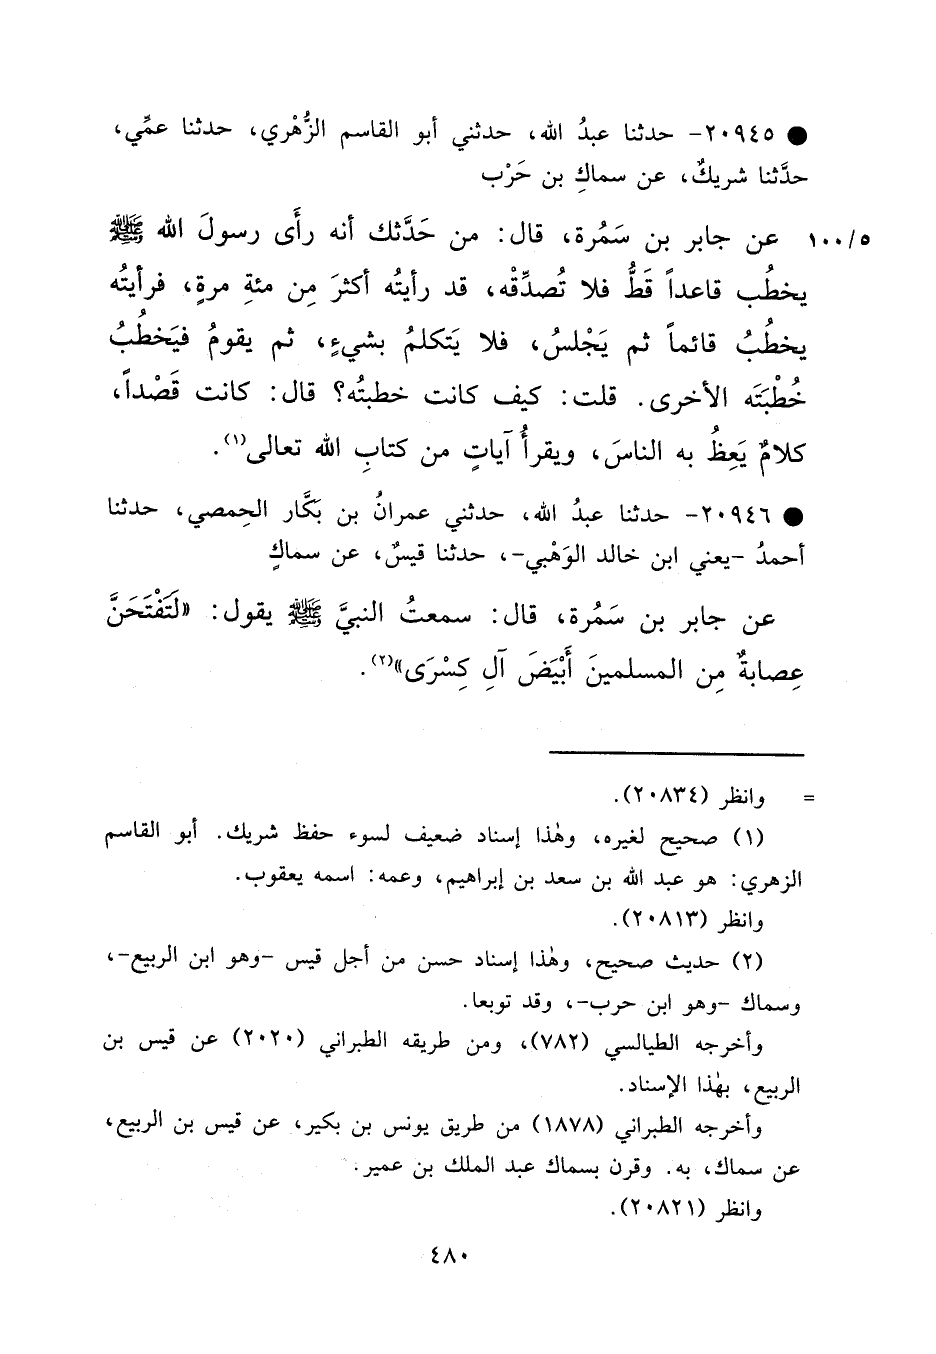 ● ٢٠٩٤٥- حدثنا عبدُ الله، حدثني أبو القاسم الزُّهْري، حدثنا عمِّي،
حدَّثنا شريكٌ، عن سماكِ بن حَرْب
١٠٠/٥ عن جابر بن سَمُرة، قال: من حَدَّثك أنه رأَى رسولَ الله ﷺ
يخطُب قاعداً قَطُّ فلا تُصدِّقْه، قد رأيتُه أكثرَ مِن مئةِ مرةٍ، فرأيتُه
يخطُبُ قائماً ثم يَجْلسُ، فلا يَتكلمُ بشيءٍ، ثم يقومُ فيَخطُبُ
خُطْبَتَه الأخرى. قلت: كيف كانت خطبتُه؟ قال: كانت قَصْداً،
كلامٌ يَعِظُ به الناسَ، ويقرأُ آياتٍ من كتابِ الله تعالى(١).
● ٢٠٩٤٦- حدثنا عبدُ الله، حدثني عمرانُ بن بَكَّار الحِمصي، حدثنا
أحمدُ -يعني ابن خالد الوَهْبي-، حدثنا قيسٌ، عن سماكٍ
عن جابر بن سَمُرة، قال: سمعتُ النبيَّ ﷺ يقول: «لَتَفْتَحَنَّ
عِصابةٌ مِن المسلمينَ أَبْيَضَ آلِ كِسْرَى»(٢).
= وانظر (٢٠٨٣٤).
(١) صحيح لغيره، وهٰذا إسناد ضعيف لسوء حفظ شريك. أبو القاسم
الزهري: هو عبد الله بن سعد بن إبراهيم، وعمه: اسمه يعقوب.
وانظر (٢٠٨١٣).
(٢) حديث صحيح، وهٰذا إسناد حسن من أجل قيس -وهو ابن الربيع-،
وسماك -وهو ابن حرب-، وقد توبعا.
وأخرجه الطيالسي (٧٨٢)، ومن طريقه الطبراني (٢٠٢٠) عن قيس بن
الربيع، بهٰذا الإسناد.
وأخرجه الطبراني (١٨٧٨) من طريق يونس بن بكير، عن قيس بن الربيع،
عن سماك، به. وقرن بسماك عبد الملك بن عمير.
وانظر (٢٠٨٢١).
٤٨٠